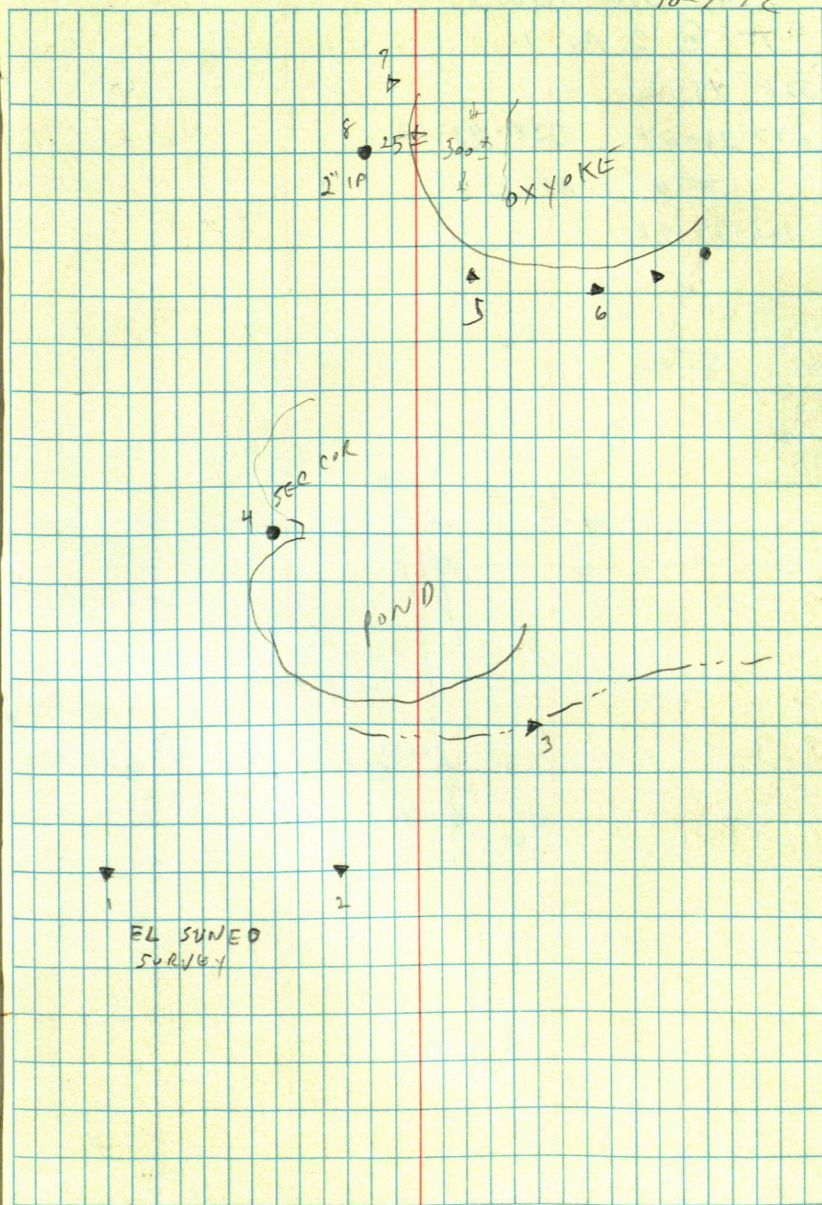 7
8
25±
300±
2" IP
OXYOKE
5
6
SEC COR
4
POND
3
1
2
EL SUNEO
SURVEY